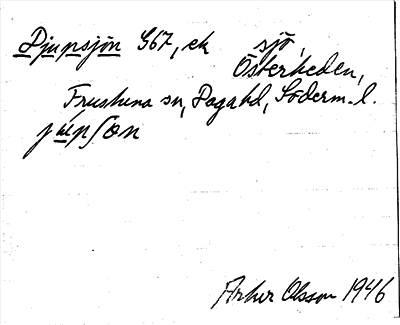 Djupsjön G67, ek sjö,
Österheden,
Frustuna sn, Daga hd, Söderm. l.
jup∫ön
Artur Olsson 1946